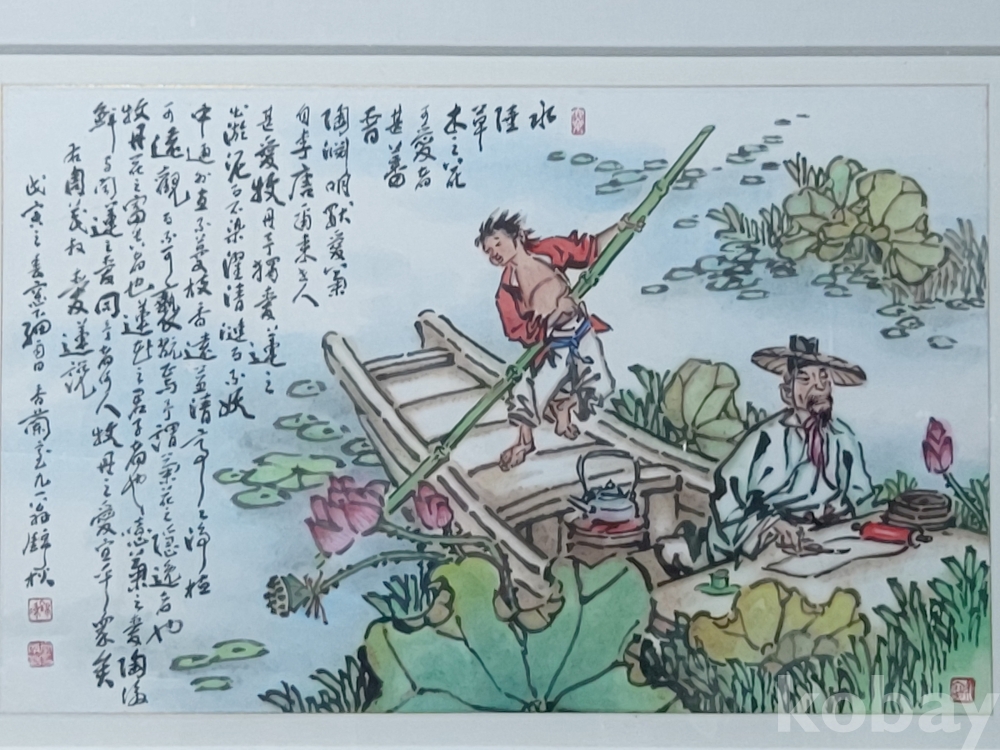 水
陸
草
木之花
可愛者
甚蕃
晉
陶淵明獨愛菊
自李唐來世人
甚愛牧丹予獨愛蓮之
出淤泥而不染濯清漣而不妖
中通外直不蔓枝香遠益清亭亭淨植
可遠觀而不可褻翫焉予謂菊花之隱逸者也
牧丹花之富貴者也蓮花之君子者也噫菊之愛陶後
鮮有聞蓮之愛同予者何人牧丹之愛宜乎衆矣
右周茂叔愛蓮說
戊寅之春窓下細雨日 九一翁
kobay